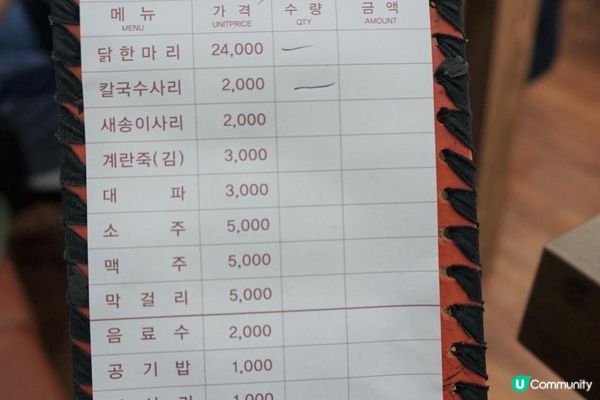 메뉴 가격 수량 금액
MENU UNITPRICE QTY AMOUNT
닭한마리 24,000
칼국수사리 2,000
새송이사리 2,000
계란죽(김) 3,000
대파 3,000
소주 5,000
맥주 5,000
막걸리 5,000
음료수 2,000
공기밥 1,000
U Community